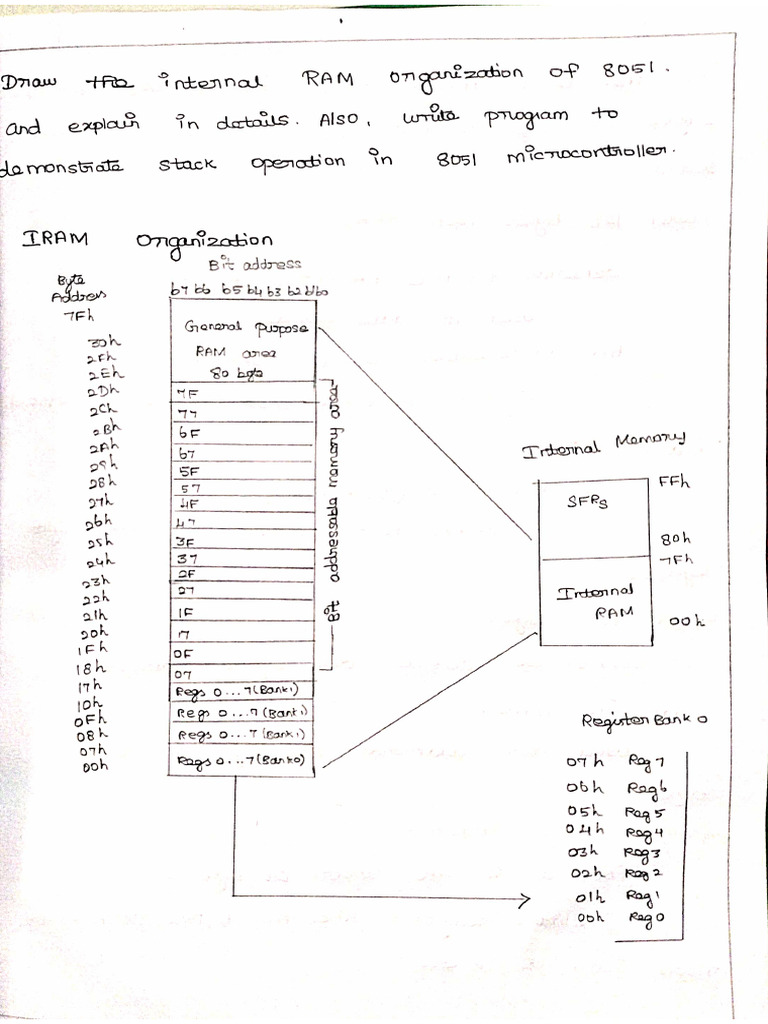 Draw the internal RAM organization of 8051.
and explain in details. Also, write program to
demonstrate stack operation in 8051 microcontroller.
IRAM Organization
Bit address
Byte
Address
b7 b6 b5 b4 b3 b2 b1 b0
7Fh
General purpose
RAM area
80 byte
30h
2Fh
2Eh
2Dh
2Ch
2Bh
2Ah
29h
28h
27h
26h
25h
24h
23h
22h
21h
20h
1Fh
18h
17h
10h
0Fh
08h
07h
00h
7F
77
6F
67
5F
57
4F
47
3F
37
2F
27
1F
17
0F
07
Regs 0...7 (Bank1)
Regs 0...7 (Bank1)
Regs 0...7 (Bank1)
Regs 0...7 (Bank0)
Bit addressable memory area
Internal Memory
FFh
SFRs
80h
7Fh
Internal
RAM
00h
Register Bank 0
07h Reg 7
06h Reg 6
05h Reg 5
04h Reg 4
03h Reg 3
02h Reg 2
01h Reg 1
00h Reg 0